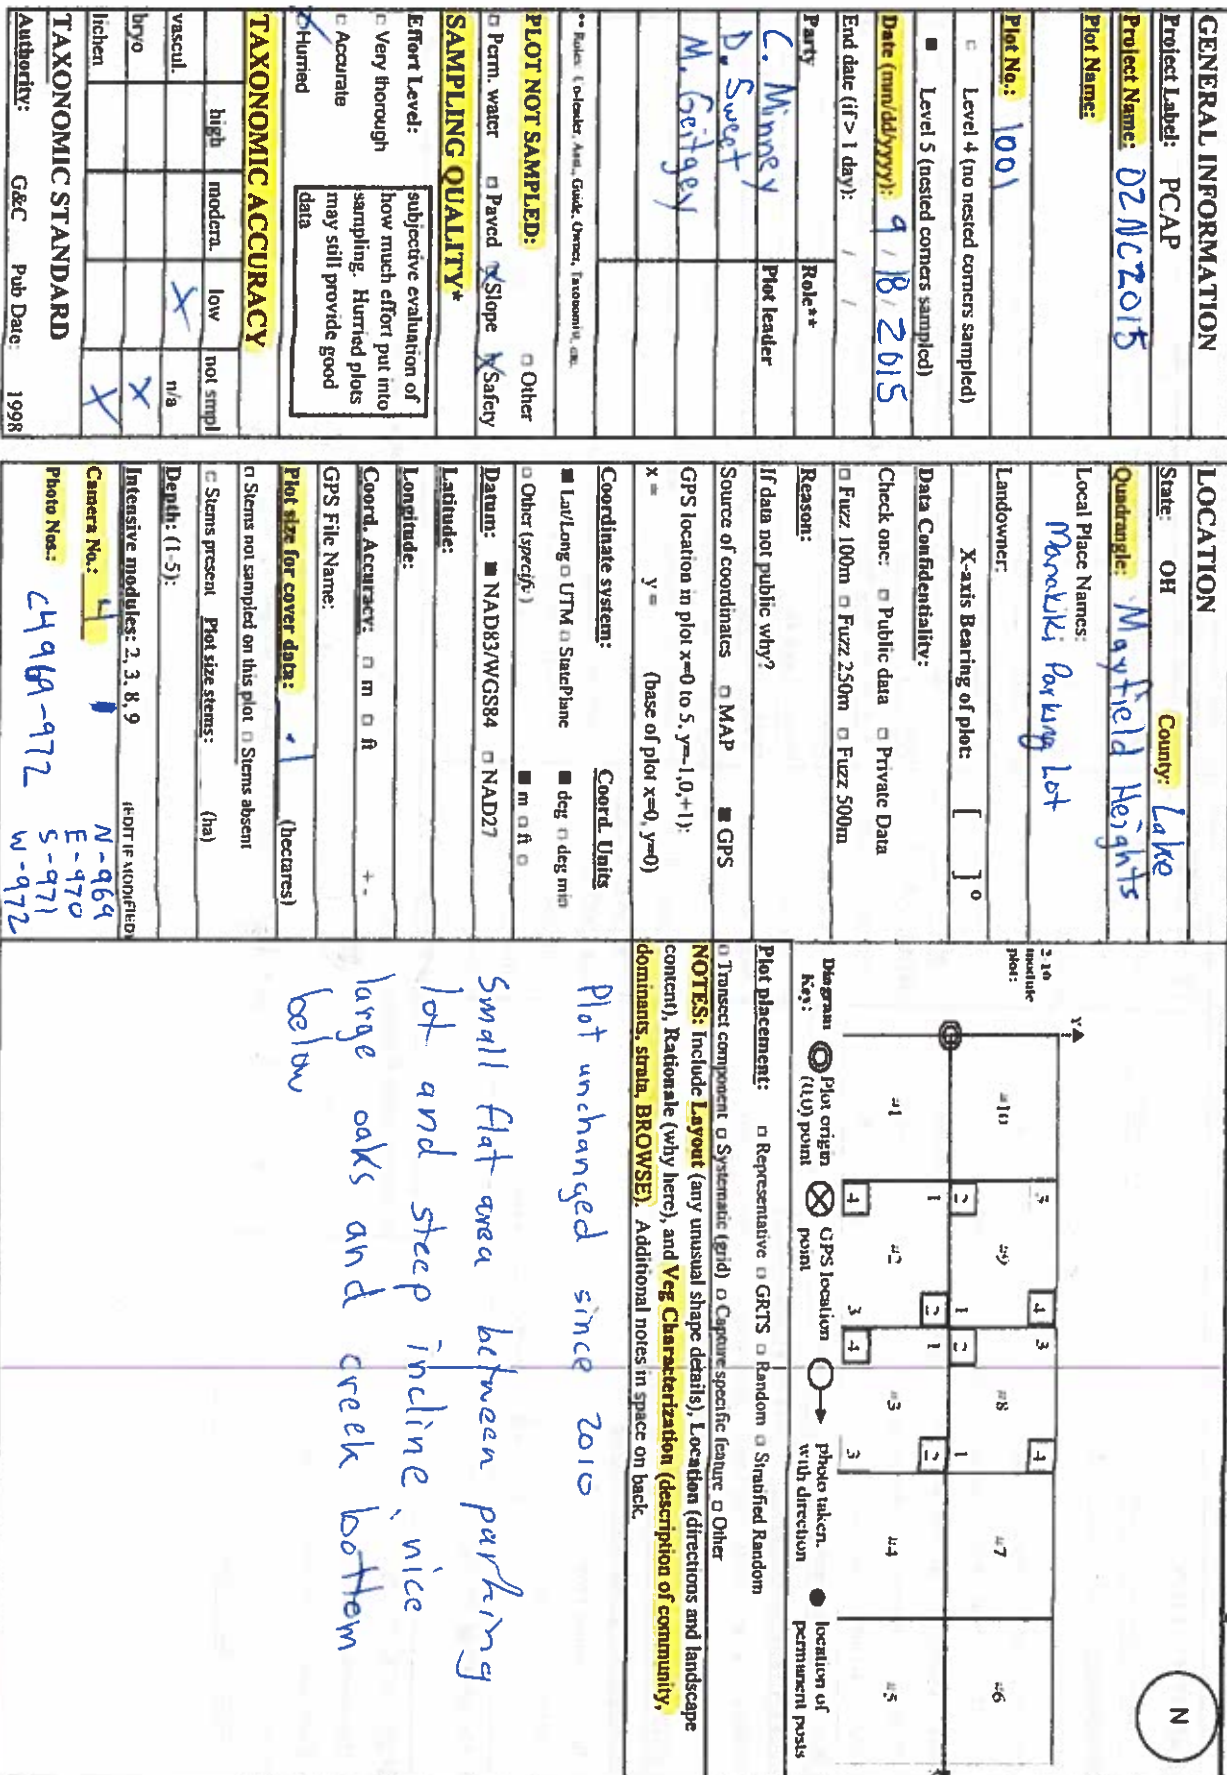 GENERAL INFORMATION
Project Label: PCAP
Project Name: 02NC2015
Plot Name:
Plot No.: 1001
□ Level 4 (no nested corners sampled)
■ Level 5 (nested corners sampled)
Date (mm/dd/yyyy): 9 / 18 / 2015
End date (if > 1 day): / /
Party Role**
C. Minney Plot leader
D. Sweet
M. Geitgey
** Roles: Co-leader, Asst., Guide, Owner, Taxonomist, etc.
PLOT NOT SAMPLED: □ Other
□ Perm. water □ Paved X Slope X Safety
SAMPLING QUALITY*
Effort Level:
□ Very thorough
□ Accurate
X Hurried
subjective evaluation of
how much effort put into
sampling. Hurried plots
may still provide good
data
TAXONOMIC ACCURACY
high modera. low not smpl
vascul. X n/a
bryo X
lichen X
TAXONOMIC STANDARD
Authority: G&C Pub Date: 1998
LOCATION
State: OH County: Lake
Quadrangle: Mayfield Heights
Local Place Names:
Manakiki Parking Lot
Landowner:
X-axis Bearing of plot: [ ]°
Data Confidentiality:
Check one: □ Public data □ Private Data
□ Fuzz 100m □ Fuzz 250m □ Fuzz 500m
Reason:
If data not public why?
Source of coordinates □ MAP ■ GPS
GPS location in plot x=0 to 5, y=-1,0,+1):
x = y = (base of plot x=0, y=0)
Coordinate system: Coord. Units
■ Lat/Long □ UTM □ StatePlane ■ deg □ deg min
□ Other (specify) ■ m □ ft □
Datum: ■ NAD83/WGS84 □ NAD27
Latitude:
Longitude:
Coord. Accuracy: □ m □ ft +-
GPS File Name:
Plot size for cover data: .1 (hectares)
□ Stems not sampled on this plot □ Stems absent
□ Stems present Plot size stems: (ha)
Depth: (1-5):
Intensive modules: 2, 3, 8, 9 (EDIT IF MODIFIED)
Camera No.: 4
Photo Nos.: C4969-972
N-969
E-970
S-971
W-972
N
2-10
module
plot:
Y
#10 #9 #8 #7 #6
#1 #2 #3 #4 #5
3 4 3 4
2 1 2 1
1 2 1 2
4 3 4 3
Diagram Key: Plot origin (0,0) point GPS location point photo taken, with direction location of permanent posts
Plot placement: □ Representative □ GRTS □ Random □ Stratified Random
□ Transect component □ Systematic (grid) □ Capture specific feature □ Other
NOTES: Include Layout (any unusual shape details), Location (directions and landscape
content), Rationale (why here), and Veg Characterization (description of community,
dominants, strata, BROWSE). Additional notes in space on back.
Plot unchanged since 2010
Small flat area between parking
lot and steep incline, nice
large oaks and creek bottom
below